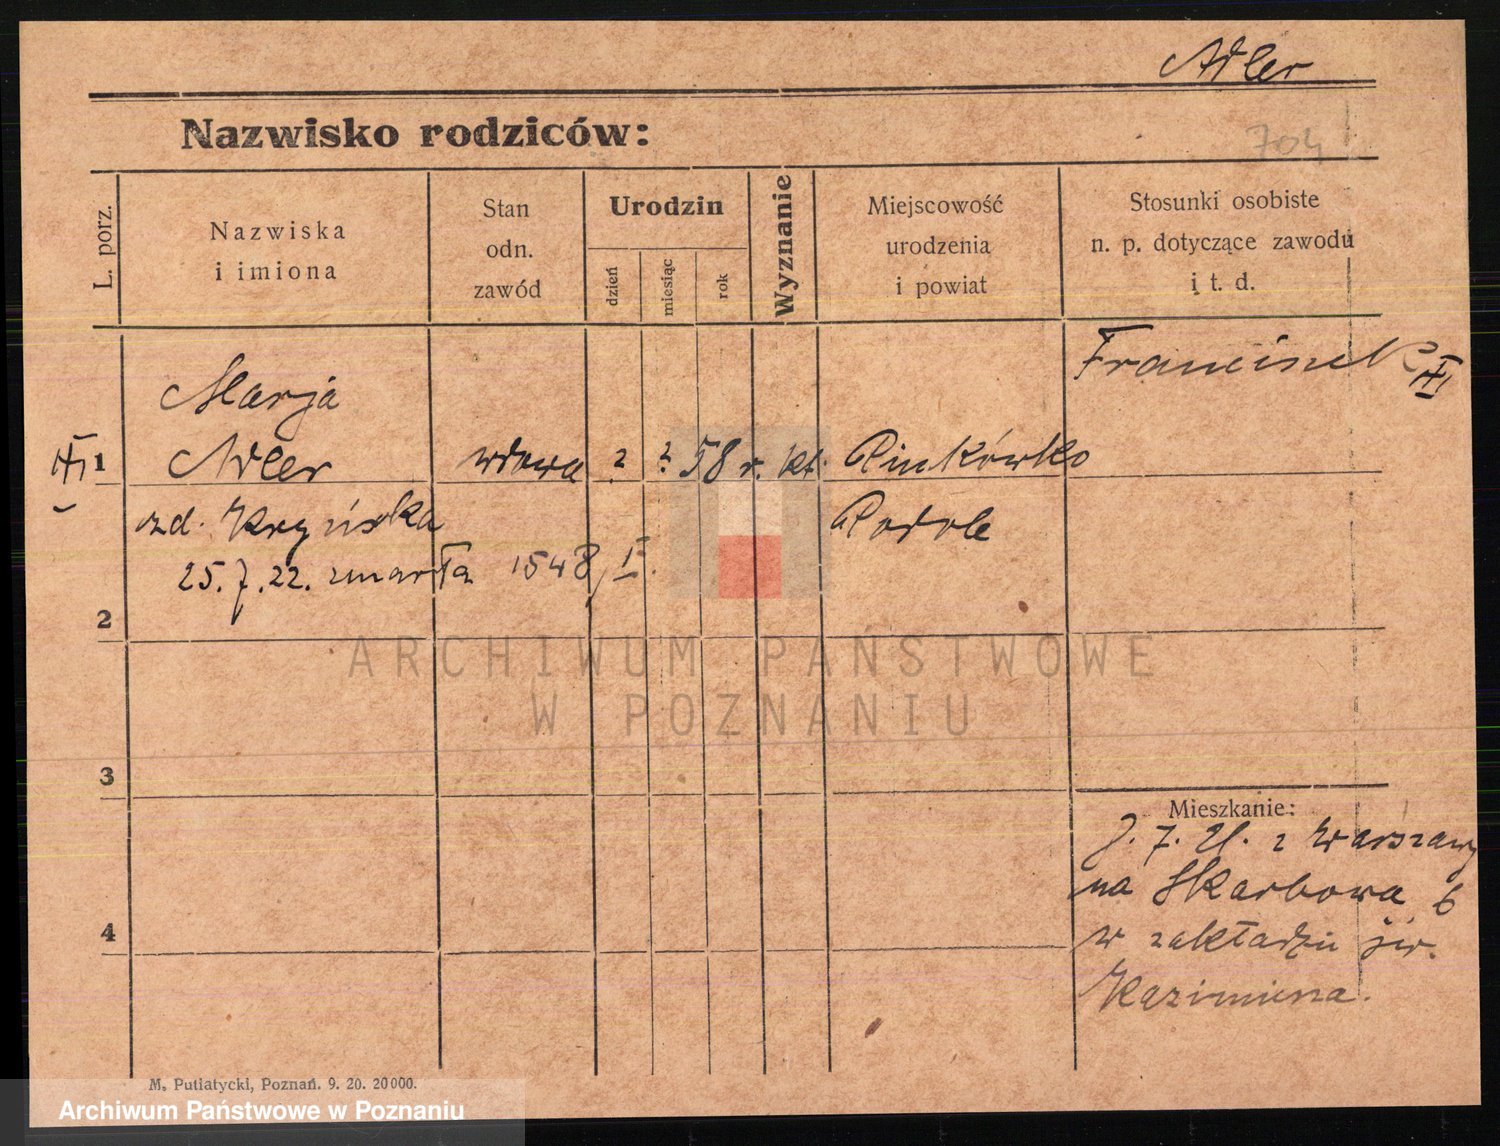 Adler
Nazwisko rodziców:
704
L. porz.
Nazwiska
i imiona
Stan
odn.
zawód
Urodzin
dzień
miesiąc
rok
Wyznanie
Miejscowość
urodzenia
i powiat
Stosunki osobiste
n. p. dotyczące zawodu
i t. d.
Franciszek
Marja
1 Adler wdowa ? ? 58 r. kt. Pinkówko
zd. Kryńska Podole
25.7.22. zmarła 1548/I.
2
ARCHIWUM PAŃSTWOWE
W POZNANIU
3
Mieszkanie:
7. 21. z Warszawy
na Skarbowa 6
4
w zakładzie św.
Kazimierza.
M. Putiatycki, Poznań. 9. 20. 20000.
Archiwum Państwowe w Poznaniu